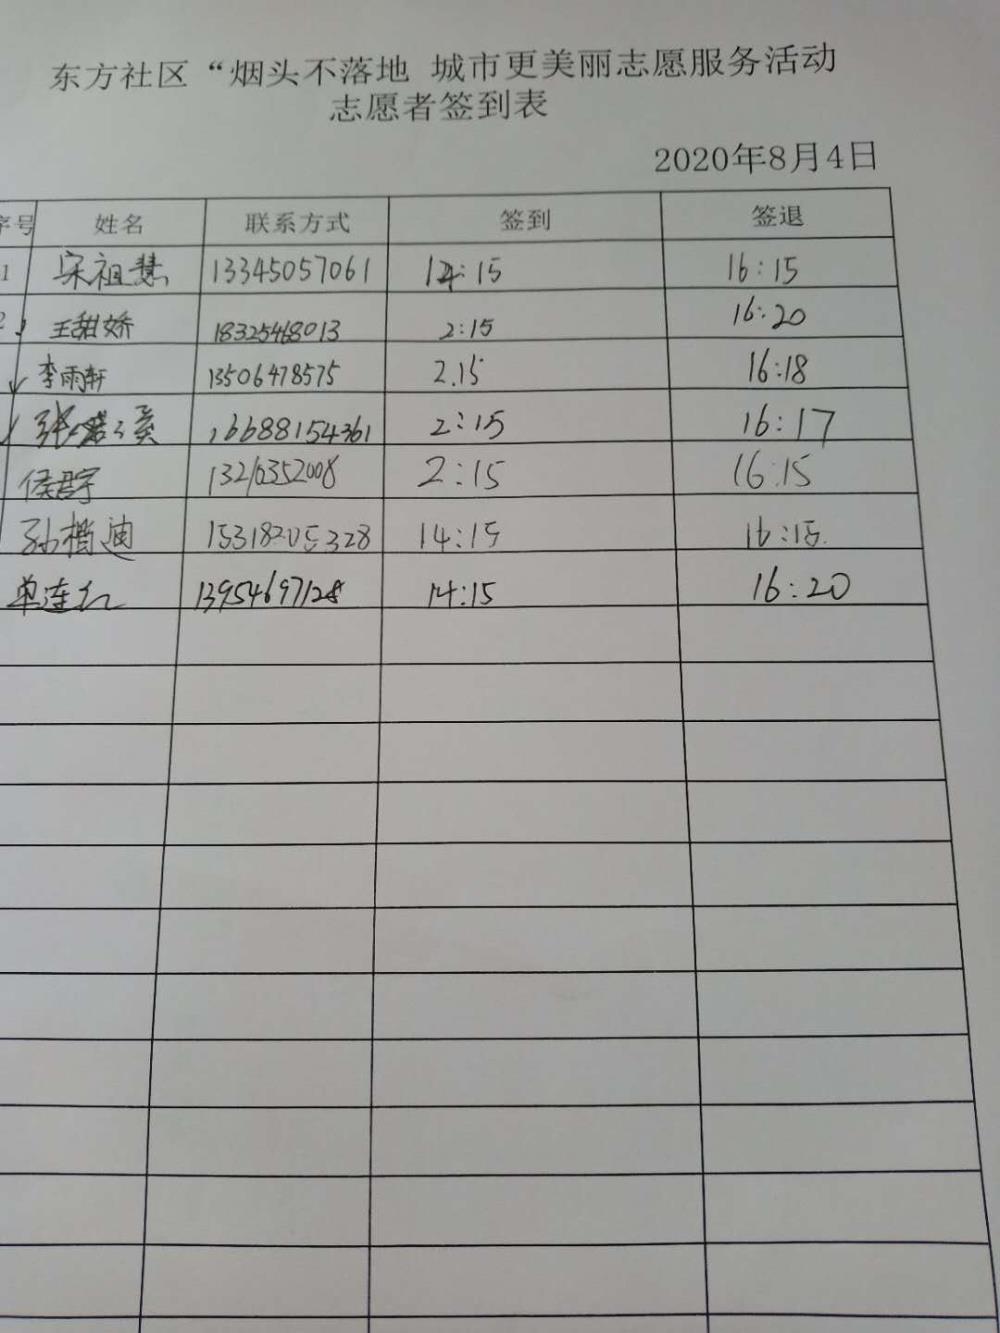 东方社区“烟头不落地 城市更美丽志愿服务活动
志愿者签到表
2020年8月4日
序号 姓名 联系方式 签到 签退
1 宋祖慧 13345057061 14:15 16:15
2 王甜娇 18325468013 2:15 16:20
李雨轩 13506478575 2.15 16:18
张 溪 16688154361 2:15 16:17
侯君宇 13210352008 2:15 16:15
孙楷迪 15318205328 14:15 16:15.
单连红 13954697128 14:15 16:20